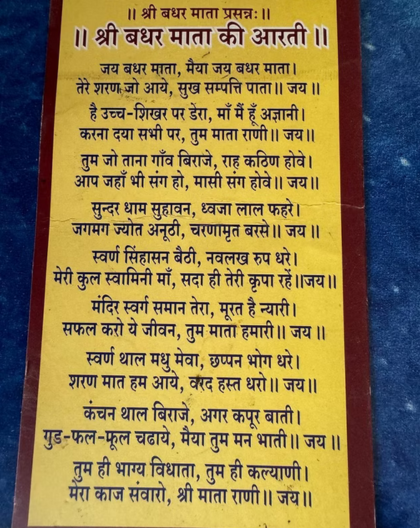 ॥ श्री बधर माता प्रसन्नः॥
॥ श्री बधर माता की आरती॥
जय बधर माता, मैया जय बधर माता।
तेरे शरण जो आये, सुख सम्पत्ति पाता॥ जय॥
है उच्च-शिखर पर डेंरा, माँ मैं हूँ अज्ञानी।
करना दया सभी पर, तुम माता राणी॥ जय॥
तुम जो ताना गाँव बिराजे, राह कठिण होवे।
आप जहाँ भी संग हो, मासी संग होवे॥ जय॥
सुन्दर धाम सुहावन, ध्वजा लाल फहरे।
जगमग ज्योत अनूठी, चरणामृत बरसे॥ जय॥
स्वर्ण सिंहासन बैठी, नवलख रुप धरे।
मेरी कुल स्वामिनी माँ, सदा ही तेरी कृपा रहें॥जय॥
मंदिर स्वर्ग समान तेरा, मूरत है न्यारी।
सफल करो ये जीवन, तुम माता हमारी॥ जय॥
स्वर्ण थाल मधु मेवा, छप्पन भोग धरे।
शरण मात हम आये, वरद हस्त धरो॥ जय॥
कंचन थाल बिराजे, अगर कपूर बाती।
गुड-फल-फूल चढाये, मैया तुम मन भाती॥ जय॥
तुम ही भाग्य विधाता, तुम ही कल्याणी।
मेरा काज संवारो, श्री माता राणी॥ जय॥